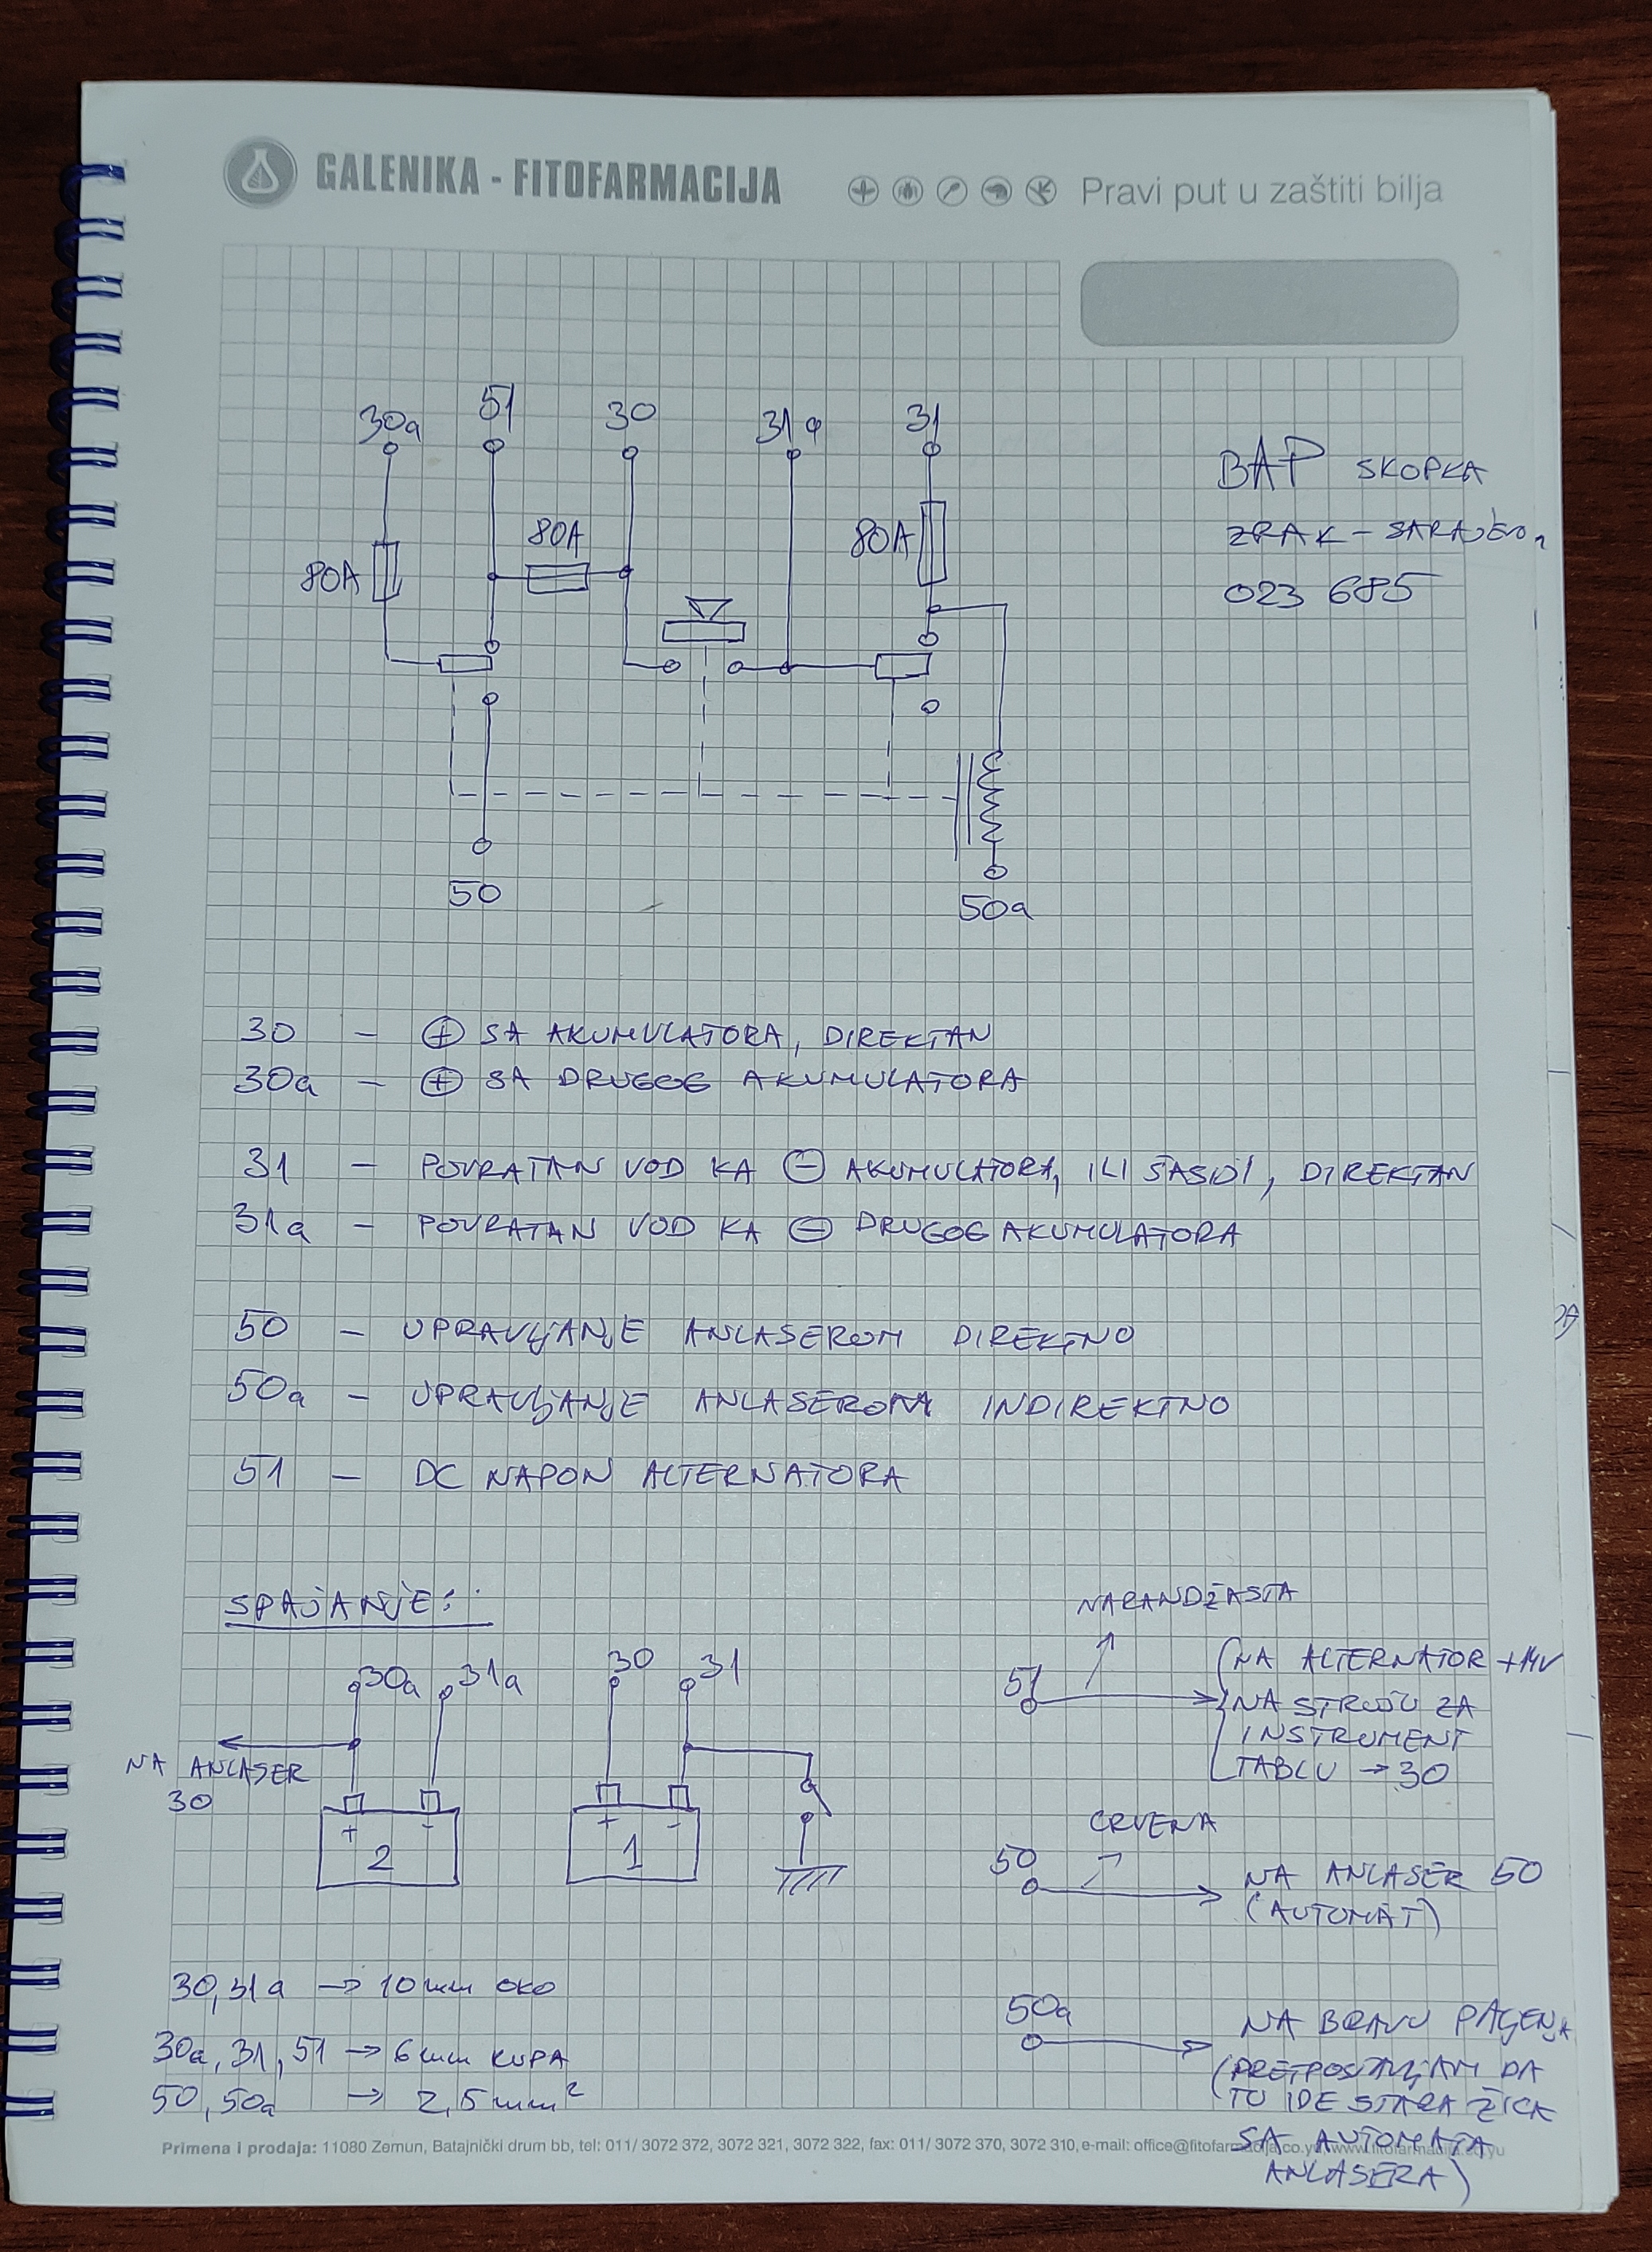 GALENIKA - FITOFARMACIJA
Pravi put u zaštiti bilja
30a 51 30 31a 31
BAP SKOPKA
ZRAK - SARAJEVO
023 685
80A 80A 80A
50 50a
30 - + SA AKUMULATORA, DIREKTAN
30a - + SA DRUGOG AKUMULATORA
31 - POVRATAN VOD KA - AKUMULATORA, ILI ŠASIJI, DIREKTAN
31a - POVRATAN VOD KA - DRUGOG AKUMULATORA
50 - UPRAVLJANJE ANLASEROM DIREKTNO
50a - UPRAVLJANJE ANLASEROM INDIREKTNO
51 - DC NAPON ALTERNATORA
SPAJANJE:
30a 31a 30 31
NA ANLASER
30
+ - 2
+ - 1
NARANDŽASTA
51
NA ALTERNATOR +14V
NA STRUJU ZA
INSTRUMENT
TABLU → 30
CRVENA
50
NA ANLASER 50
(AUTOMAT)
30, 31a → 10mm OKO
30a, 31, 51 → 6mm KUPA
50, 50a → 2,5mm²
50a
NA BRAVU PALJENJA
(PRETPOSTAVLJAM DA
TU IDE STARA ŽICA
SA AUTOMATA
ANLASERA)
Primena i prodaja: 11080 Zemun, Batajnički drum bb, tel: 011/ 3072 372, 3072 321, 3072 322, fax: 011/ 3072 370, 3072 310, e-mail: office@fitofarmacija.co.yu, www.fitofarmacija.co.yu